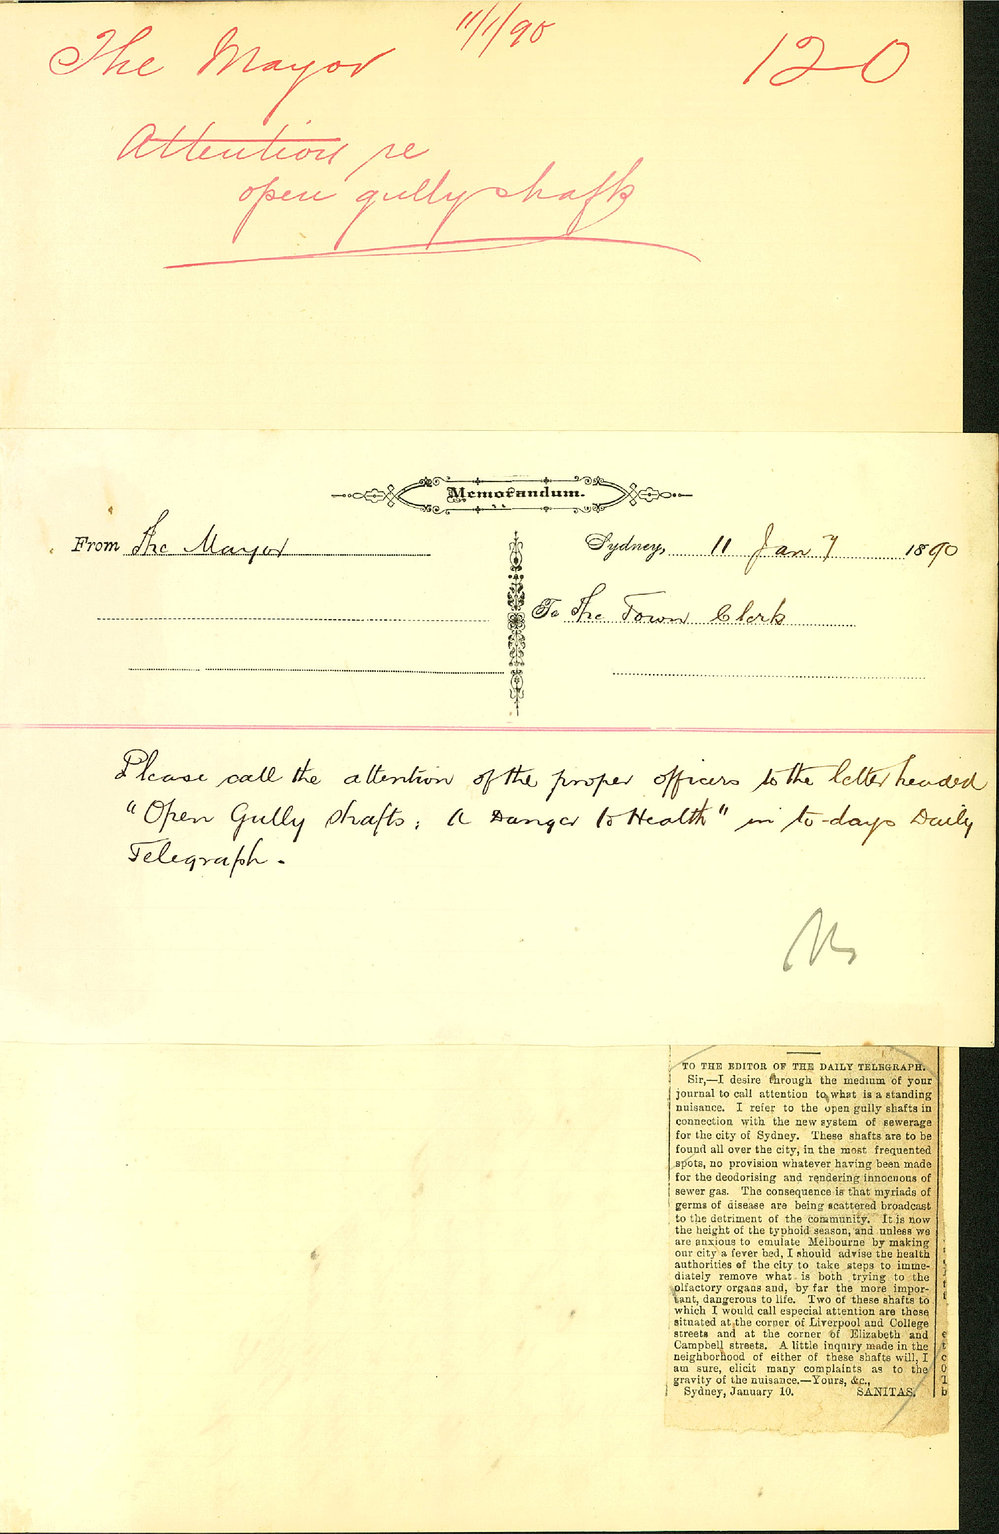 11/1/90
The Mayor
120
Attention re
open gully shafts
Memorandum.
From The Mayor
Sydney, 11 Jany 1890
To The Town Clerk
Please call the attention of the proper officers to the letter headed
"Open Gully shafts; A Danger to Health" in to-days Daily
Telegraph.
TO THE EDITOR OF THE DAILY TELEGRAPH.
Sir,—I desire through the medium of your
journal to call attention to what is a standing
nuisance. I refer to the open gully shafts in
connection with the new system of sewerage
for the city of Sydney. These shafts are to be
found all over the city, in the most frequented
spots, no provision whatever having been made
for the deodorising and rendering innocuous of
sewer gas. The consequence is that myriads of
germs of disease are being scattered broadcast
to the detriment of the community. It is now
the height of the typhoid season, and unless we
are anxious to emulate Melbourne by making
our city a fever bed, I should advise the health
authorities of the city to take steps to imme-
diately remove what is both trying to the
olfactory organs and, by far the more impor-
tant, dangerous to life. Two of these shafts to
which I would call especial attention are those
situated at the corner of Liverpool and College
streets and at the corner of Elizabeth and
Campbell streets. A little inquiry made in the
neighborhood of either of these shafts will, I
am sure, elicit many complaints as to the
gravity of the nuisance.—Yours, &c.,
Sydney, January 10. SANITAS.